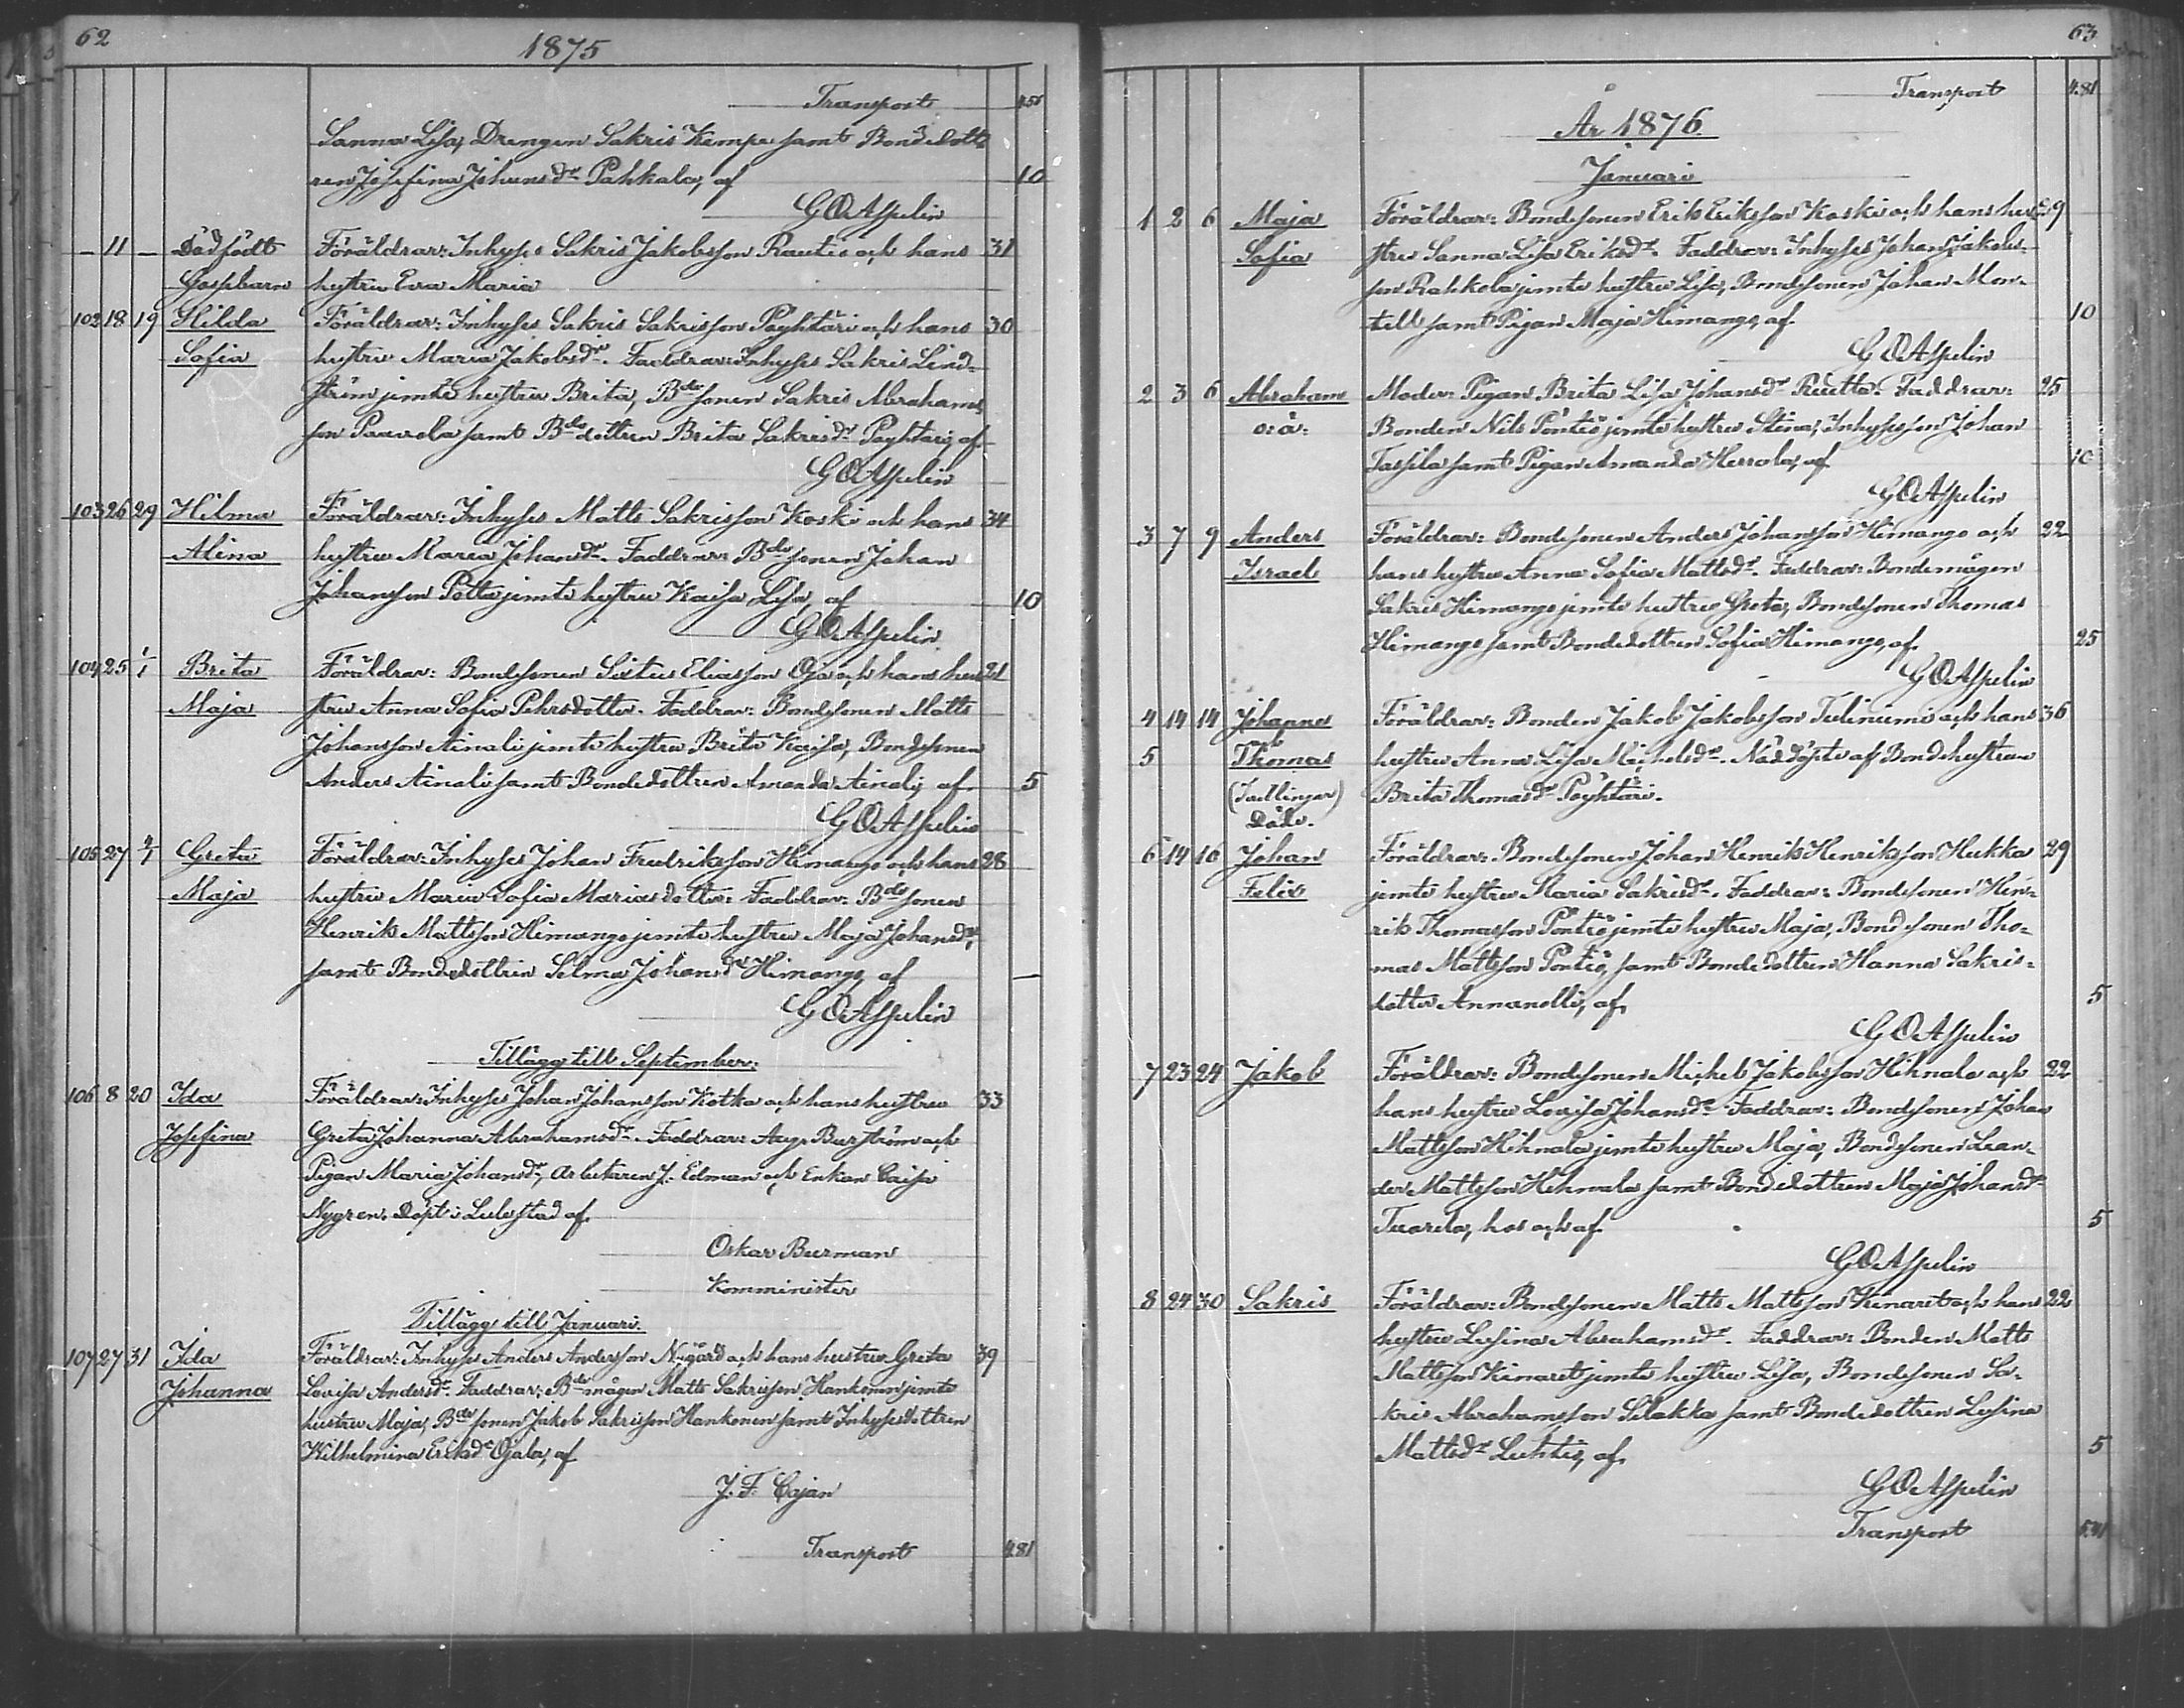 62
1875
Transport 4.51
Sanna Lisa, Drengen Sakris Kempe samt Bondedott-
ren Josefina Johansdr Pahkala, af 10
G O Aspelin
— 11 — Dödfödt Föräldrar: Inhyses Sakris Jakobsson Rautio och hans 31
Gossebarn hustru Eva Maria
102 18 19 Hilda Föräldrar: Inhyses Sakris Sakrisson Pöyhtäri och hans 30
Sofia hustru Maria Jakobsdr. Faddrar: Inhyses Sakris Lind-
ström jemte hustru Brita, Bdesonen Sakris Abrahams-
son Paavola samt Bdedottren Brita Sakrisdr Pöyhtäri, af
G O Aspelin
103 26 29 Hilma Föräldrar: Inhyses Matts Sakrisson Koski och hans 34
Alina hustru Maria Johansdr. Faddrar: Bdesonen Johan
Johansson Pottu jemte hustru Kaisa Lisa, af 10
G O Aspelin
104 25 1/1 Brita Föräldrar: Bondesonen Sixtus Eliasson Oja och hans hu- 21
Maja stru Anna Sofia Pehrsdotter. Faddrar: Bondesonen Matts
Johansson Ainali jemte hustru Brita Kaisa, Bondesonen
Anders Ainali samt Bondedottren Amanda Ainali, af 5
G O Aspelin
105 27 2/1 Greta Föräldrar: Inhyses Johan Fredriksson Himango och hans 28
Maja hustru Maria Sofia Mariasdotter. Faddrar: Bdesonen
Henrik Mattsson Himango jemte hustru Maja Johansdr,
samt Bondedottren Selma Johansdr Himango, af —
G O Aspelin
Tillägg till September:
106 8 20 Ida Föräldrar: Inhyses Johan Johansson Kotka och hans hustru 33
Josefina Greta Johanna Abrahamsdr. Faddrar: Aug. Burström och
Pigan Maria Johansdr, Arbetaren J. Edman och Enkan Caisa
Nygren. Döpt i Luleå stad af.
Oskar Burman
Komminister
Tillägg till Januari.
107 27 31 Ida Föräldrar: Inhyses Anders Andersson Nygård och hans hustru Greta 39
Johanna Lovisa Andersdr. Faddrar: Bdemågen Matts Sakrisson Hankonen jemte
hustru Maja, Bdesonen Jakob Sakrisson Hankonen samt Inhysesdottren
Wilhelmina Eriksdr Ojala, af
J. F. Cajan
Transport 4.81
63
Transport 4.81
År 1876.
Januari
1 2 6 Maja Föräldrar: Bondesonen Erik Eriksson Koski och hans hu- 29
Sofia stru Sanna Lisa Eriksdr. Faddrar: Inhyses Johan Jakobs-
son Rahkola jemte hustru Lisa, Bondesonen Johan Mon-
tell samt Pigan Maja Himango, af 10
G O Aspelin
2 3 6 Abraham Moder: Pigan Brita Lisa Johansdr Ruutta. Faddrar: 25
o: ä: Bonden Nils Pöntiö jemte hustru Stina, Inhysesson Johan
Tassila samt Pigan Amanda Herrola, af 10
G O Aspelin
3 7 9 Anders Föräldrar: Bondesonen Anders Johansson Himango och 22
Israel hans hustru Anna Sofia Mattsdr. Faddrar: Bondemågen
Sakris Himango jemte hustru Greta, Bondesonen Thomas
Himango samt Bondedottren Sofia Himango, af 25
G O Aspelin
4 14 14 Johannes Föräldrar: Bonden Jakob Jakobsson Tuliniemi och hans 36
5 Thomas hustru Anna Lisa Michelsdr. Nöddöpte af Bondehustrun
(Tvillingar) Brita Thomasdr Pöyhtäri.
Döde.
6 14 16 Johan Föräldrar: Bondesonen Johan Henrik Henriksson Hukka 29
Felix jemte hustru Maria Sakrisdr. Faddrar: Bondesonen Hen-
rik Thomasson Pöntiö jemte hustru Maja, Bondesonen Tho-
mas Mattsson Pöntiö, samt Bondedottren Hanna Sakris-
dotter Annanolli, af 5
G O Aspelin
7 23 24 Jakob Föräldrar: Bondesonen Michel Jakobsson Hihnala och 22
hans hustru Lovisa Johansdr. Faddrar: Bondesonen Johan
Mattsson Hihnala jemte hustru Maja, Bondesonen Lean-
der Mattsson Hihnala samt Bondedottren Maja Johansdr
Tuorila, hos och af 5
G O Aspelin
8 24 30 Sakris Föräldrar: Bondesonen Matts Mattsson Kinaret och hans 22
hustru Lusina Abrahamsdr. Faddrar: Bonden Matts
Mattsson Kinaret jemte hustru Lisa, Bondesonen Sa-
kris Abrahamsson Silakka samt Bondedottren Lusina
Mattsdr Luhtio, af 5
G O Aspelin
Transport